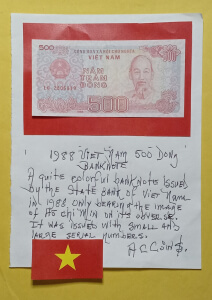 500
CỘNG HÒA XÃ HỘI CHỦ NGHĨA
VIỆT NAM
NĂM
TRĂM
ĐỒNG
500
1988 VIET NAM 500 DONG
BANKNOTE
A quite colorful banknote issued
by the STATE BANK OF VIET Nam
in 1988 only bearing the image
of Ho chi Min on its obverse.
It was issued with small and
large serial numbers.